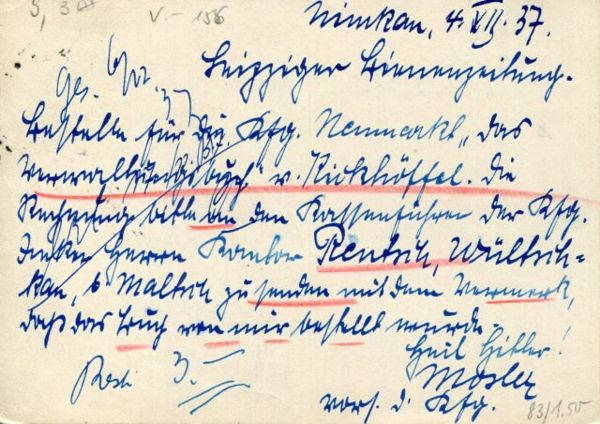 V.- 156
Nimkau, 4. XII. 37.
Leipziger Bienenzeitung.
Bestelle für die Kfg. Neumarkt „das
Verwaltungsbuch" v. Kickhöffel. Die
Rechnung bitte an den Kassenführer der Kfg.
Imker Herrn Kantor Rentsch, Wültsch-
kau, b Maltsch zu senden mit dem Vermerk,
daß das Buch von mir bestellt wurde.
Heil Hitler!
Mosler
vors. d. Kfg.
3.-
83/1.50